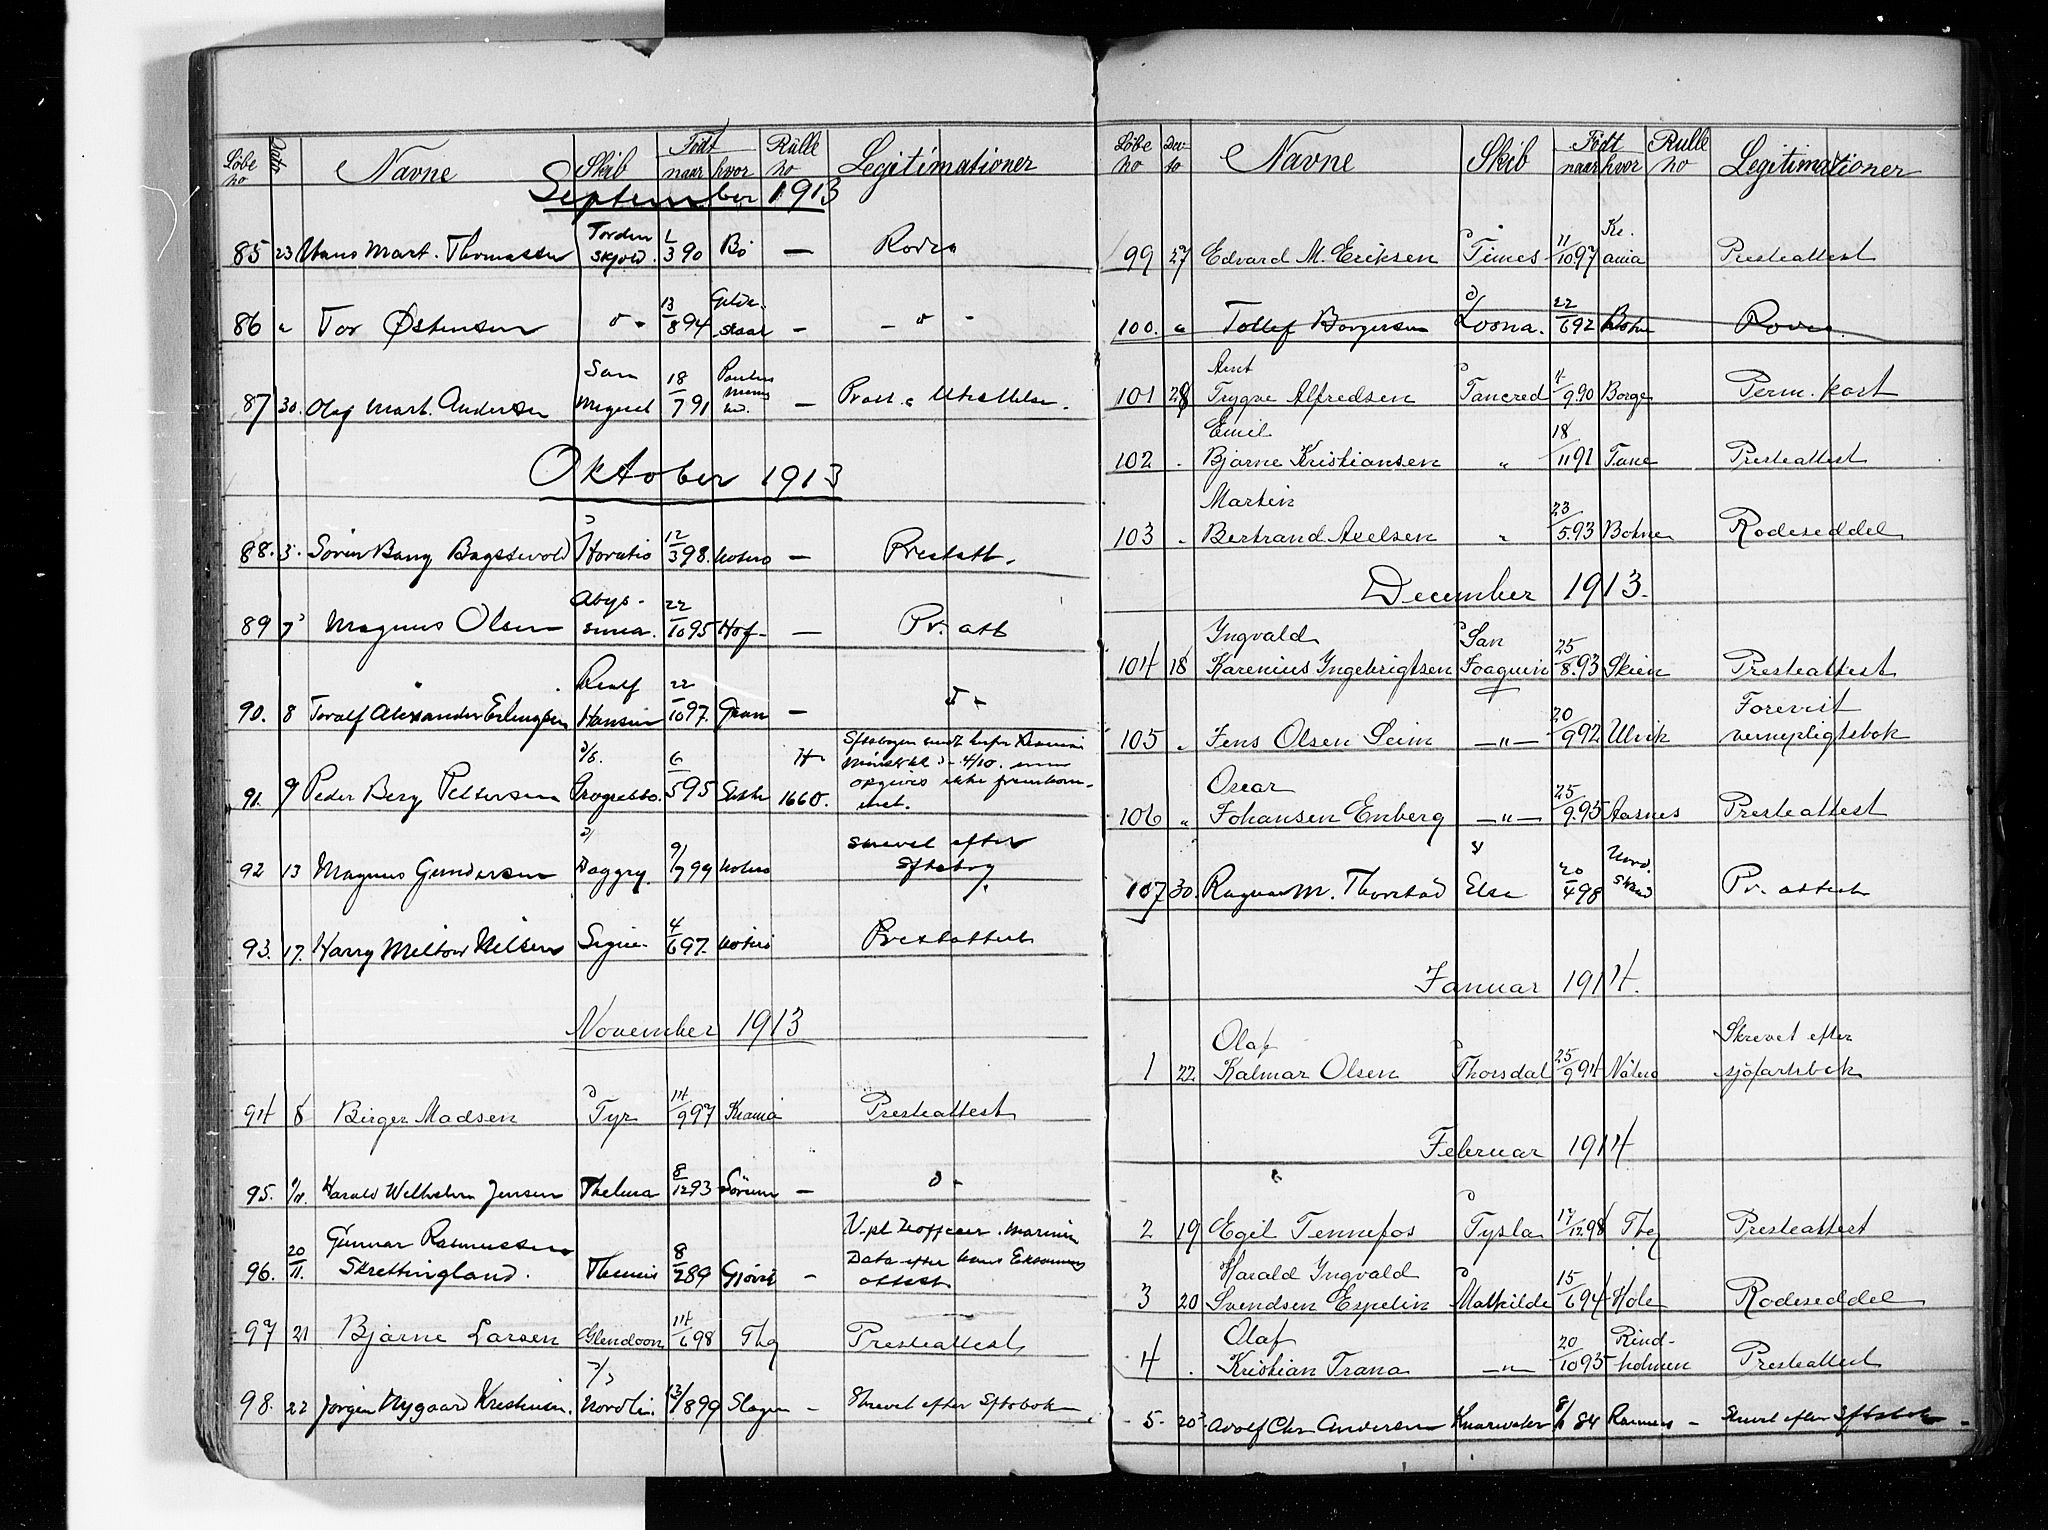 Løbe no Dato Navne Skib Født naar hvor Rulle no Legitimationer
September 1913
85 23 Hans Mart. Thomassen Torden skjold. 1/3 90 Bø — Rodes
86 " Tor Østensen 13/8 94 Gilde- skaar —
87 30. Olaf Mart. Andersen San Miguel 18/7 91 —
Oktober 1913
88. 3. Sören Bang Horatio 12/3 98. Notero — Prestatt.
89 7 Magnus Olsen Abys- sinia. 22/10 95 Hof — Pr. att
90. 8 Toralf Alexander Erlingsen Realf Hansen 22/10 97. Gran —
91. 9 Peder Berg Pettersen Progresso. 6/5 95 H 1660.
92 13 Magnus Gundersen Daggry. 9/7 99 Notero skrevet efter Sftsbog
93. 17. Harry Milton Nilsen Signe. 4/6 97. Notero Prestattest
November 1913
94 8 Birger Madsen Tyr 14/9 97 Kr.ania Presteattest
95. Harald Wilhelm Jensen Thelma 8/12 93 Sörum —
96. 20/11. Gunnar Rasmussen Skrettingland. Themis 8/2 89 Gjövik —
97 21 Bjarne Larsen Glendoon 14/6 98 Tbg Presteattest
98. 22 Jörgen Nygaard Kristensen. Nordli. 13/8 99 Slagen — Skrevet efter Sftsbok
Løbe no Da- to Navne Skib Født naar hvor Rulle no Legitimationer
99 27 Edvard M. Eriksen Times 11/10 97 Kr. ania Presteattest
100. " Tollef Borgersen Loona. 22/6 92 Botne Rodes.
101 28 Arnt Trygve Alfredsen Tancred 4/9 90 Borge Perm. kort
102 . Emil Bjarne Kristiansen " 18/11 91 Presteattest
103 " Martin Bertrand Axelsen " 23/5 93 Botne Rodeseddel
December 1913.
104 18 Ingvald Karenius Ingebrigtsen San Joaquin 25/8 93 Skien Presteattest
105 " Jens Olsen Seim —"— 20/9 92 Ulvik Forevist vernepligtsbok
106 " Oscar Johansen Enberg —"— 25/9 95 Aasnes Presteattest
107 30. Ragnar M. Thorstad Elsa 20/4 98 Nord. strand Pr. attest
Januar 1914.
1 22 Olaf Kalmar Olsen Thorsdal 25/9 94 Nøtterø Skrevet efter sjøfartsbok
Februar 1914
2 19 Egil Tennefos Tysla 17/12 98 Tbg Presteattest
3 20 Harald Ingvald Svendsen Espelin Mathilde 15/6 94 Hole Rodeseddel
4 . Olaf Kristian Trana —"— 20/10 93 Rind- holmen Presteattest
5. 20 Adolf Chr Andersen Knarwater 84 Ramnes — Skrevet efter Sftsbok